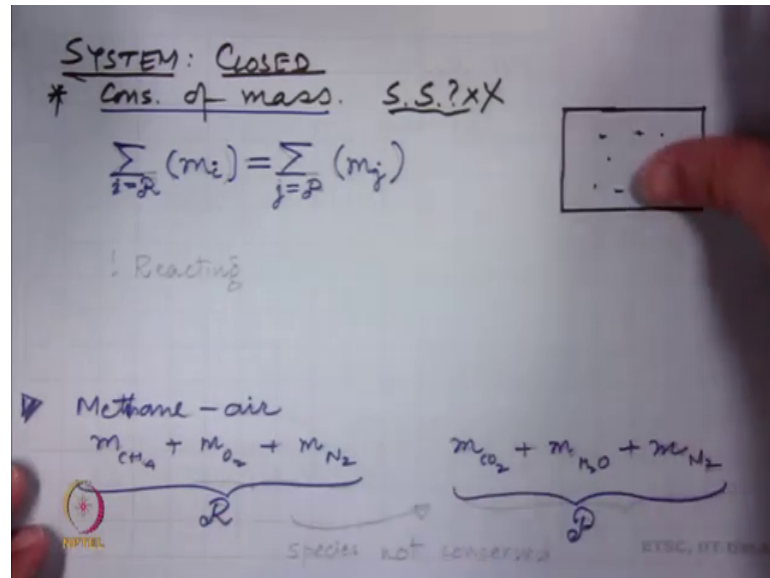 SYSTEM: CLOSED
* Cons. of mass. S.S.?xX
∑ i=R (mᵢ) = ∑ j=P (mⱼ)
! Reacting
▶ Methane - air
m CH₄ + m O₂ + m N₂
R
m CO₂ + m H₂O + m N₂
P
species not conserved
NPTEL